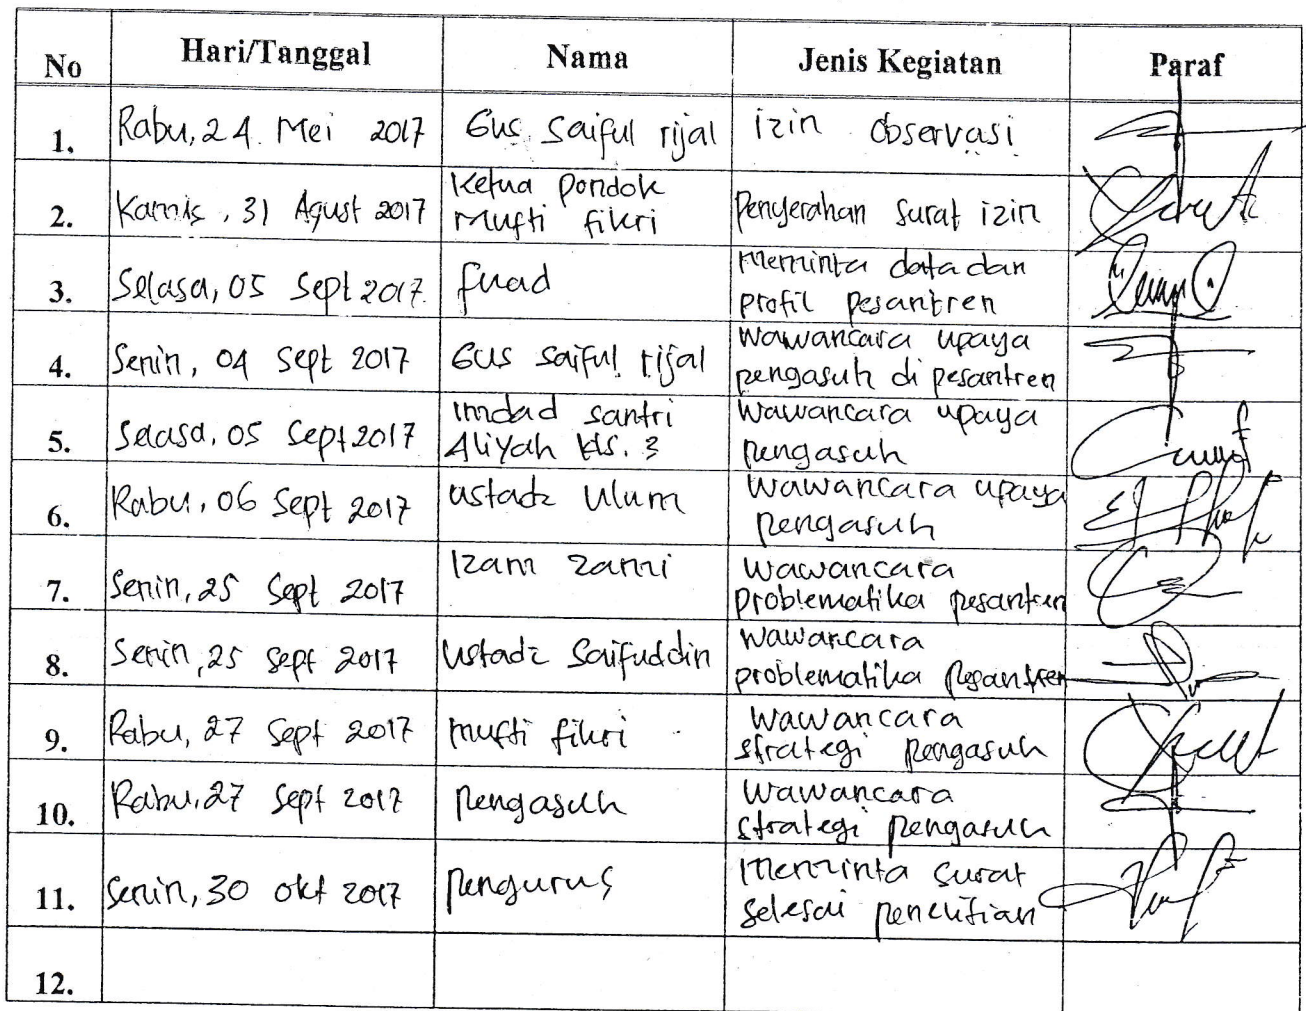 No Hari/Tanggal Nama Jenis Kegiatan Paraf
1. Rabu, 24 Mei 2017 Gus Saiful rijal izin observasi
2. Kamis, 31 Agust 2017 Ketua pondok Mufti fikri Penyerahan surat izin
3. Selasa, 05 Sept 2017 fuad Meminta data dan profil pesantren
4. Senin, 04 Sept 2017 Gus Saiful rijal Wawancara upaya pengasuh di pesantren
5. Selasa, 05 Sept 2017 imdad santri Aliyah kls. 3 Wawancara upaya pengasuh
6. Rabu, 06 Sept 2017 ustadz Ulum Wawancara upaya pengasuh
7. Senin, 25 Sept 2017 Izam zami Wawancara problematika pesantren
8. Senin, 25 Sept 2017 Ustadz Saifuddin Wawancara problematika pesantren
9. Rabu, 27 Sept 2017 Mufti fikri Wawancara strategi pengasuh
10. Rabu, 27 Sept 2017 pengasuh Wawancara strategi pengasuh
11. Senin, 30 okt 2017 pengurus Meminta surat selesai penelitian
12.